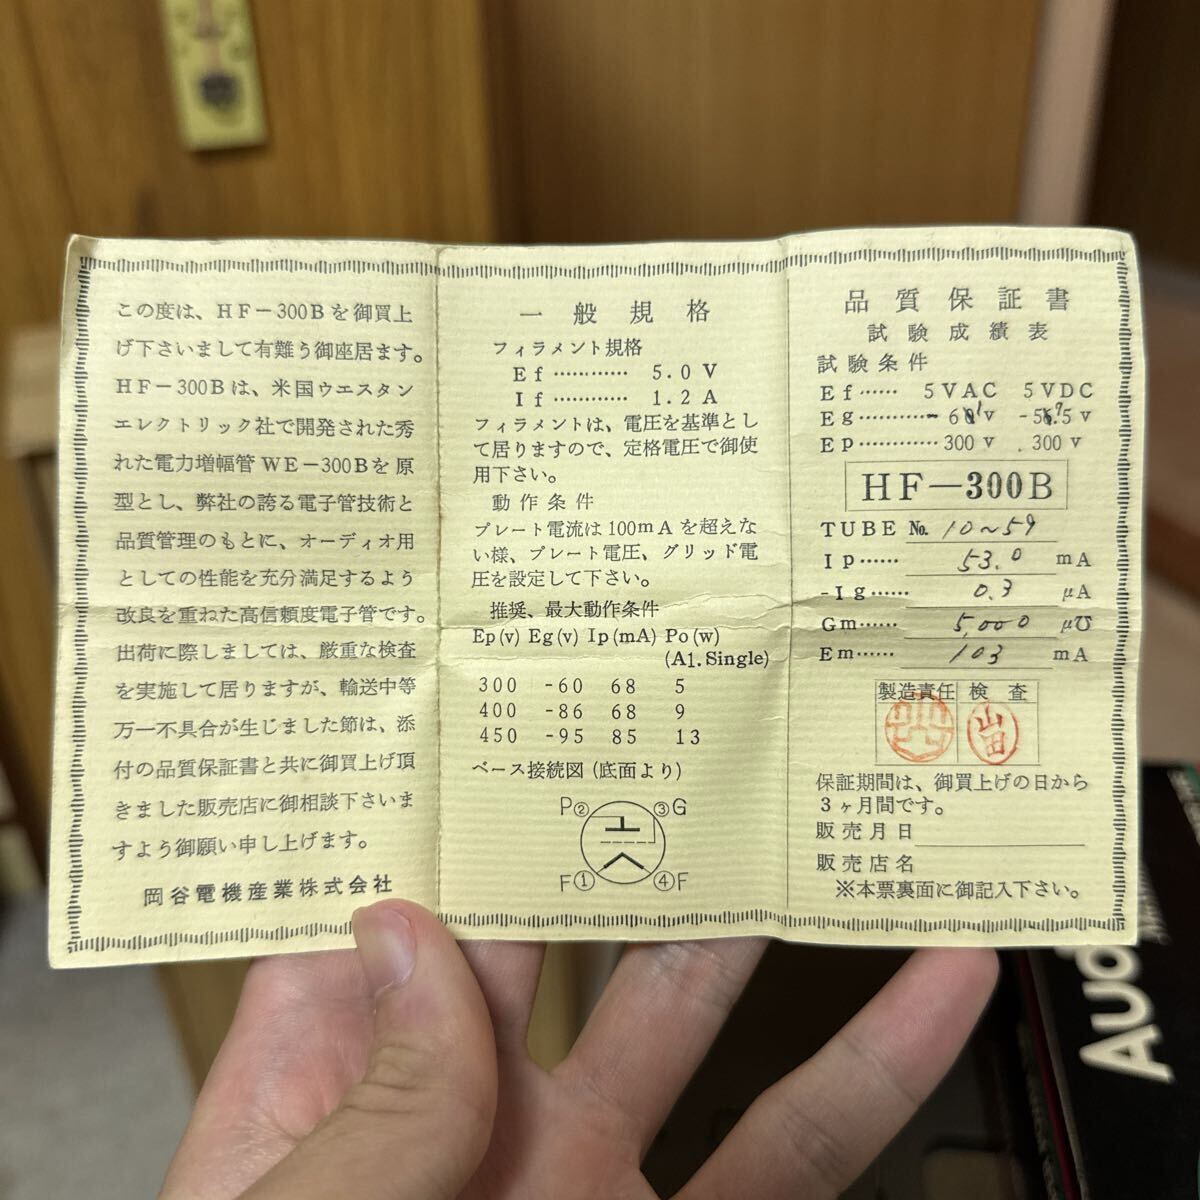 この度は、HF－300Bを御買上
げ下さいまして有難う御座居ます。
HF－300Bは、米国ウエスタン
エレクトリック社で開発された秀
れた電力増幅管WE－300Bを原
型とし、弊社の誇る電子管技術と
品質管理のもとに、オーディオ用
としての性能を充分満足するよう
改良を重ねた高信頼度電子管です。
出荷に際しましては、厳重な検査
を実施して居りますが、輸送中等
万一不具合が生じました節は、添
付の品質保証書と共に御買上げ頂
きました販売店に御相談下さいま
すよう御願い申し上げます。
岡谷電機産業株式会社
一般規格
フィラメント規格
Ef………… 5.0 V
If………… 1.2 A
フィラメントは、電圧を基準とし
て居りますので、定格電圧で御使
用下さい。
動作条件
プレート電流は100mAを超えな
い様、プレート電圧、グリッド電
圧を設定して下さい。
推奨、最大動作条件
Ep(v) Eg(v) Ip(mA) Po(w)
(A1.Single)
300 -60 68 5
400 -86 68 9
450 -95 85 13
ベース接続図(底面より)
P② ③G
F① ④F
品質保証書
試験成績表
試験条件
Ef…… 5VAC 5VDC
Eg………
Ep………… 300 v 300 v
HF－300B
TUBE №. 10~59
Ip…… 53.0 mA
-Ig…… 0.3 μA
Gm…… 5,000 μ℧
Em…… 103 mA
製造責任 検査
山田
保証期間は、御買上げの日から
3ヶ月間です。
販売月日
販売店名
※本票裏面に御記入下さい。
Aud